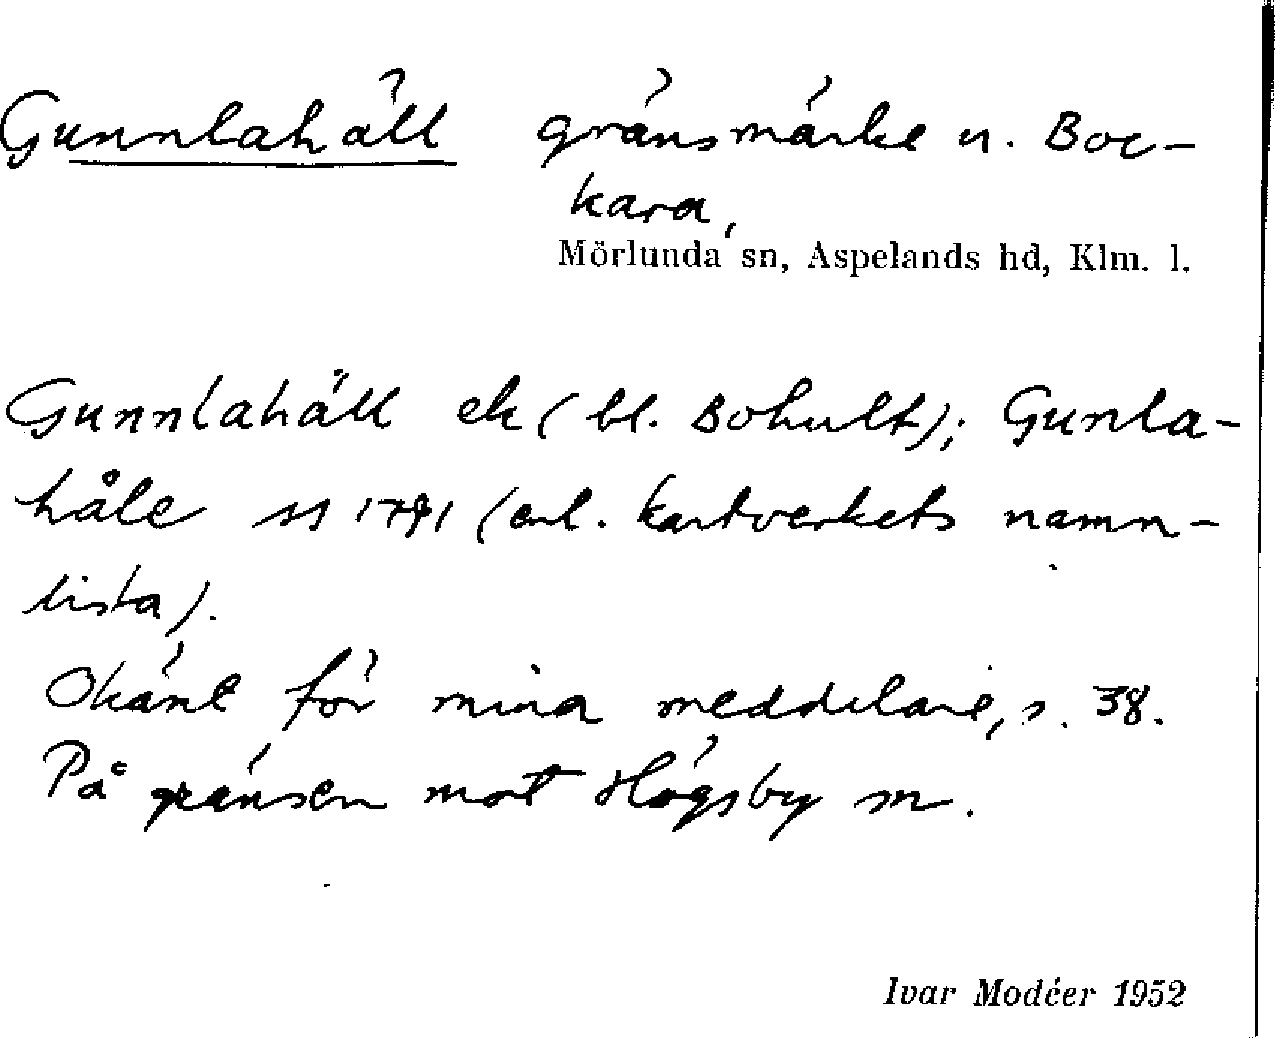 Gunnlahäll gränsmärke u. Boc-
kara,
Mörlunda sn, Aspelands hd, Klm. l.
Gunnlahäll ek (bl. Bohult); Gunla-
håle 1791 (enl. kartverkets namn-
lista).
Okänt för mina meddelare, s. 38.
På gränsen mot Högsby sn.
Ivar Modéer 1952